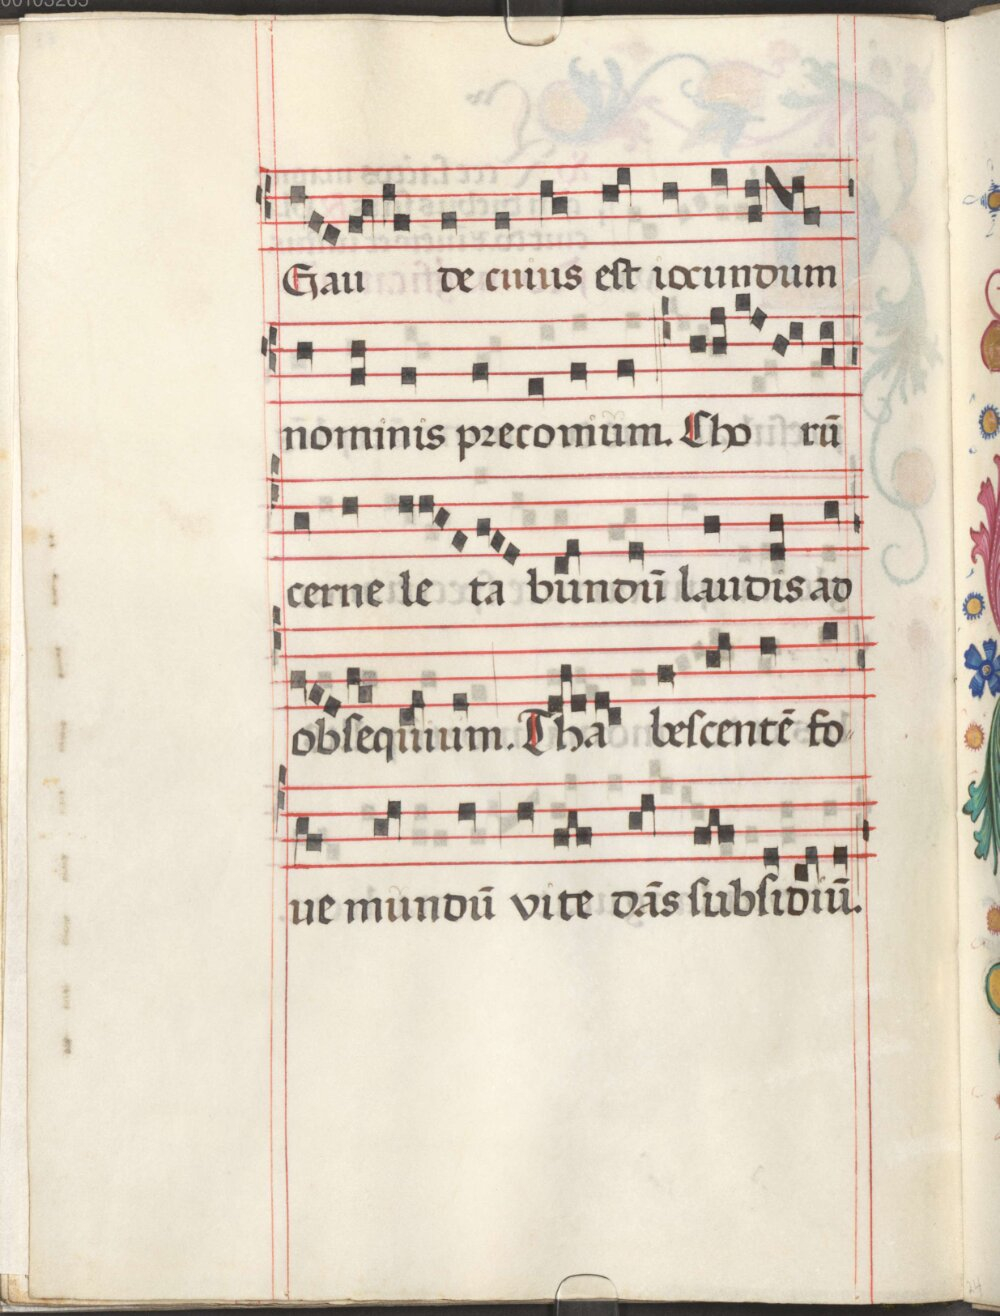 Gau de cuius est iocundum
nominis preconium. Cho rū
cerne le ta bundū laudis ad
obsequium. Tha bescentē fo
ue mundū vite dās subsidiū.